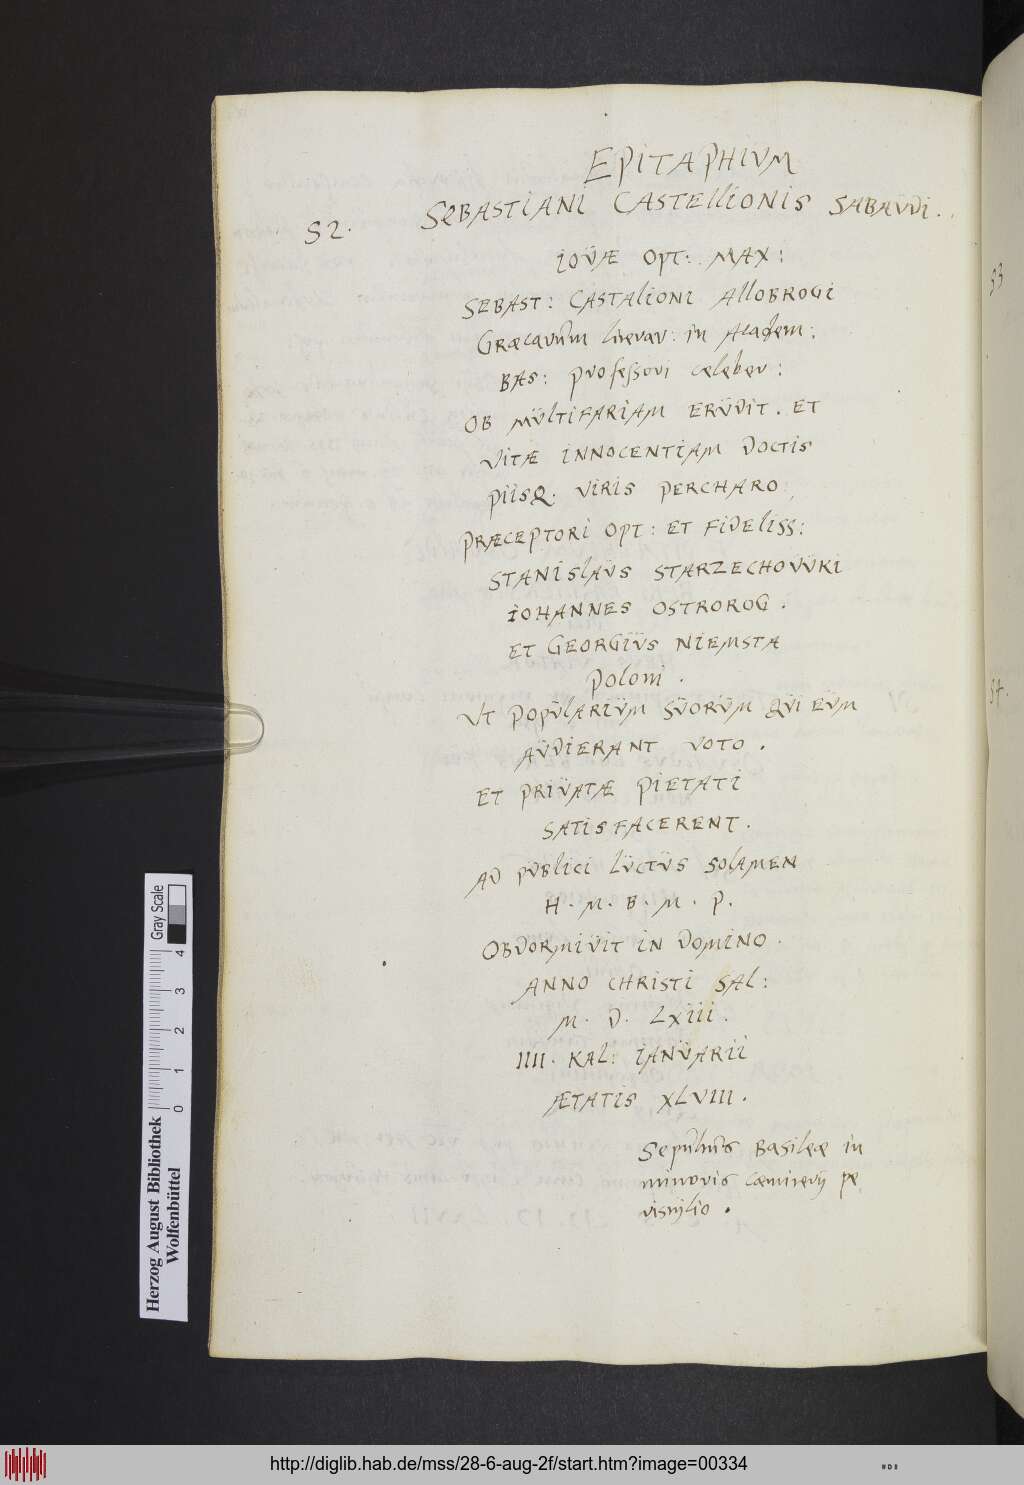 EPITAPHIVM
52. SEBASTIANI CASTELLIONIS SABAVDI.
IOVÆ OPT: MAX:
SEBAST: CASTALIONI AllOBROGI
Græcarum literar: in Academ:
BAS: professori celeber:
OB MULTIFARIAM ERUDIT. ET
VITÆ INNOCENTIAM DOCTIS
PIISQ. VIRIS PERCHARO
PRÆCEPTORI OPT: ET FIDELISS:
STANISLAUS STARZECHOVUKI
IOHANNES OSTROROG.
ET GEORGIUS NIEMSTA
Poloni.
UT POPULARIUM SUORUM QUI EUM
AUDIERANT VOTO.
ET PRIUATÆ PIETATI
SATISFACERENT.
AD PUBLICI LUCTUS SOLAMEN
H. M. B. M. P.
OBDORMIUIT IN DOMINO.
ANNO CHRISTI SAL:
M. D. LXIII.
IIII. KAL: IANUARII
ÆTATIS XLVIII.
Sepultus Basileæ in
minoris cæmiterij pe
ristylio.
53
54.
Herzog August Bibliothek
Wolfenbüttel
0 1 2 3 4
Gray Scale
http://diglib.hab.de/mss/28-6-aug-2f/start.htm?image=00334